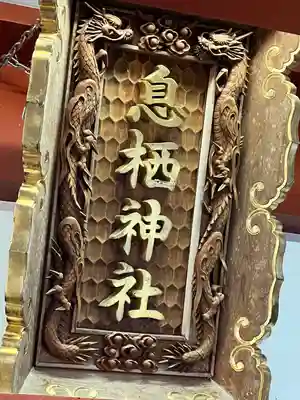 息栖神社